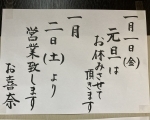 一月一日(金)
元旦は
お休みさせて
頂きます
一月
二日(土)より
営業致します
お喜奈